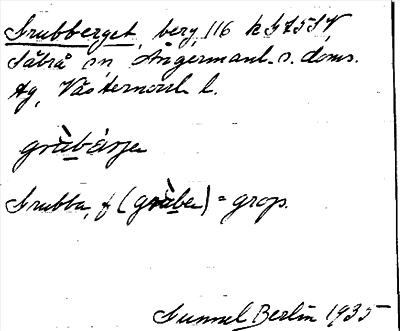 Grubberget, berg, 116 k G7SSV,
Säbrå sn, Ångermanl. s. doms.
tg, Västernorrl. l.
grùbárje
Grubba, f (grùba) = grop.
Gunnel Berlin 1935